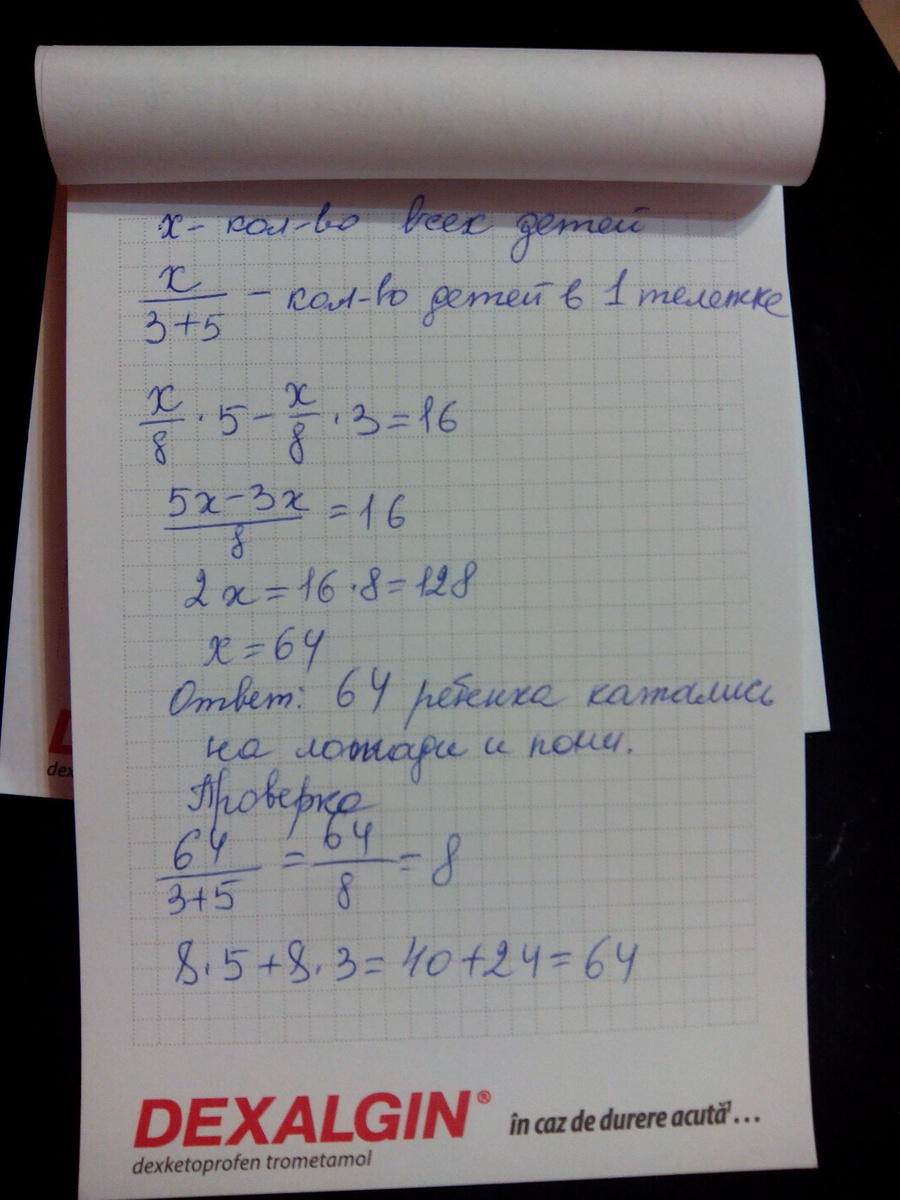 x- кол-во всех детей
x/(3+5) - кол-во детей в 1 тележке
x/8 · 5 - x/8 · 3 = 16
(5x-3x)/8 = 16
2x = 16 · 8 = 128
x = 64
Ответ: 64 ребенка катались
на лошади и пони.
Проверка
64/(3+5) = 64/8 = 8
8·5+8·3=40+24=64
DEXALGIN® în caz de durere acută...
dexketoprofen trometamol
dex